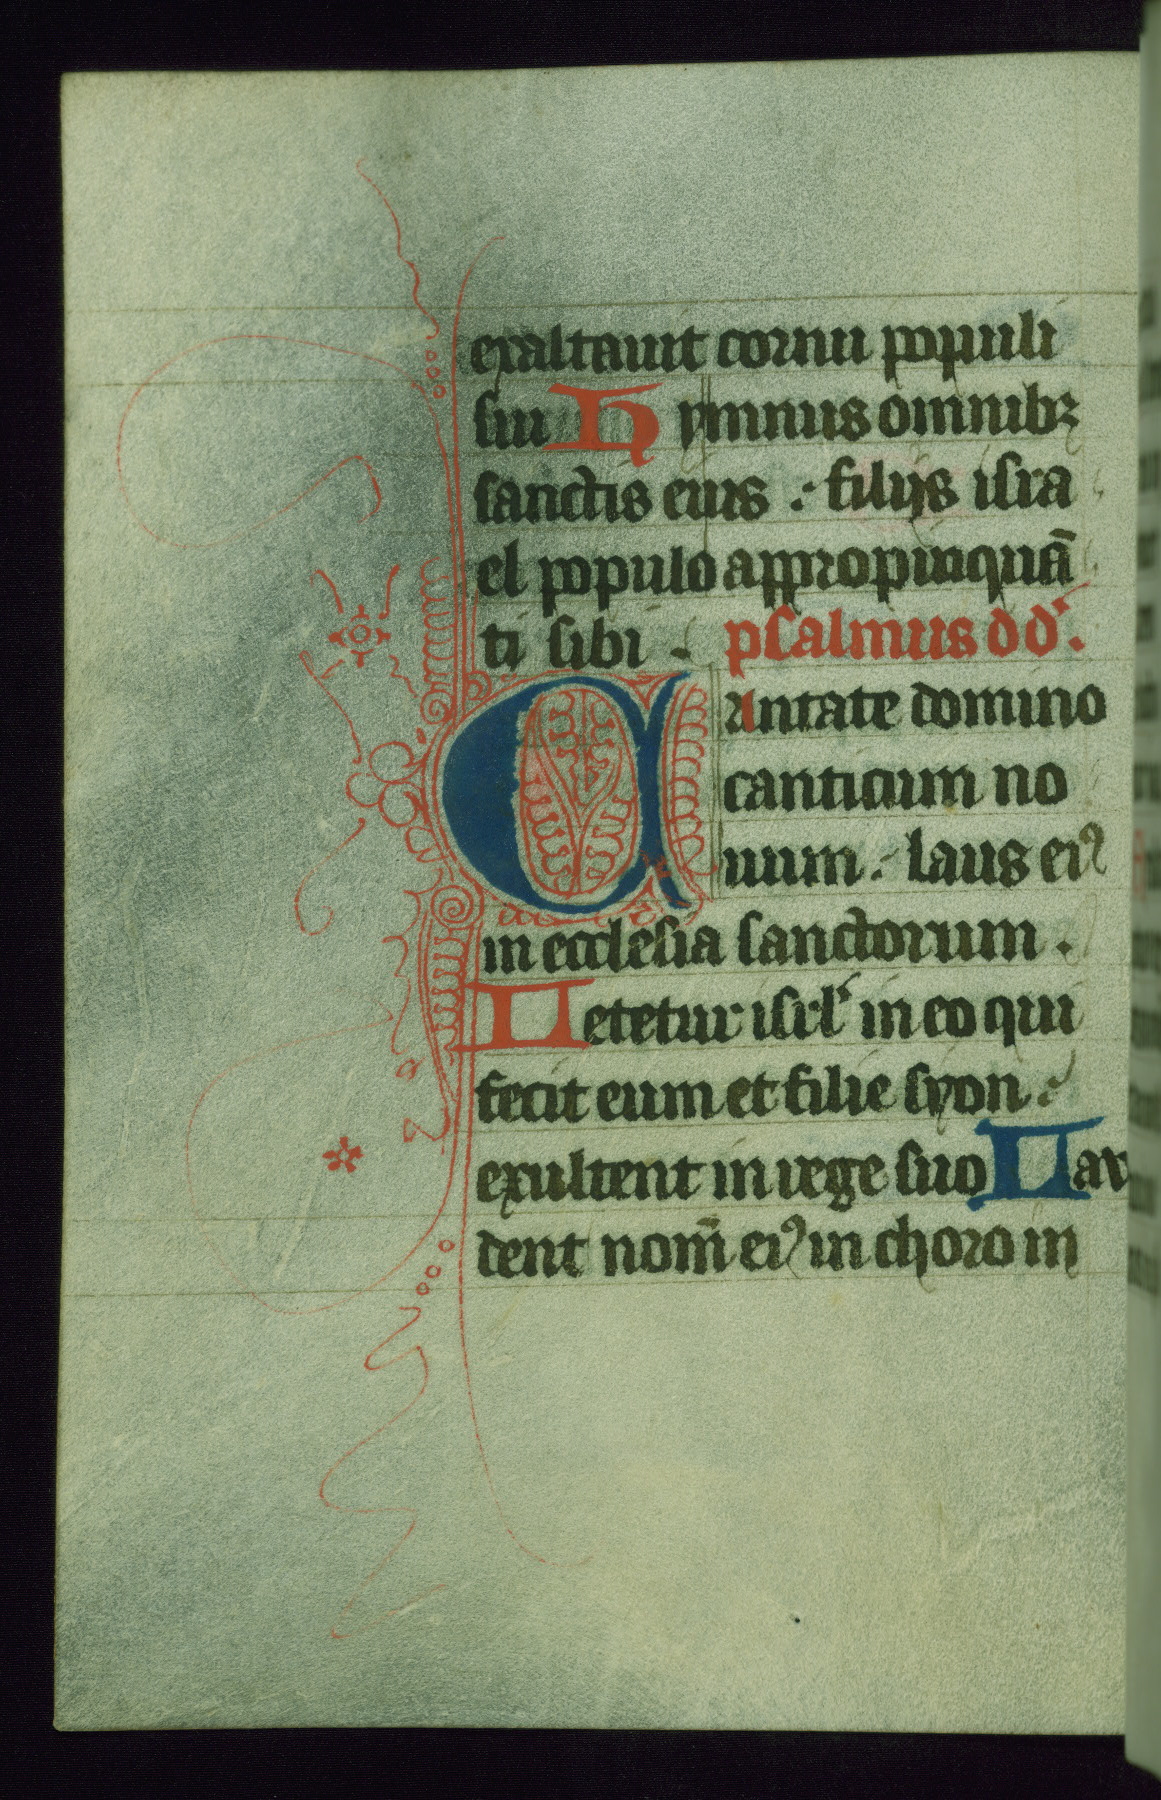 exaltauit cornu populi
sui Hymnus omnibꝫ
sanctis eius : filijs isra
el populo appropinquā
ti sibi . psalmus dd'.
Cantate domino
canticum no
uum . laus eiꝰ
in ecclesia sanctorum .
Letetur isrl' in eo qui
fecit eum et filie syon :
exultent in rege suo Lau
dent nom̄ eiꝰ in choro in